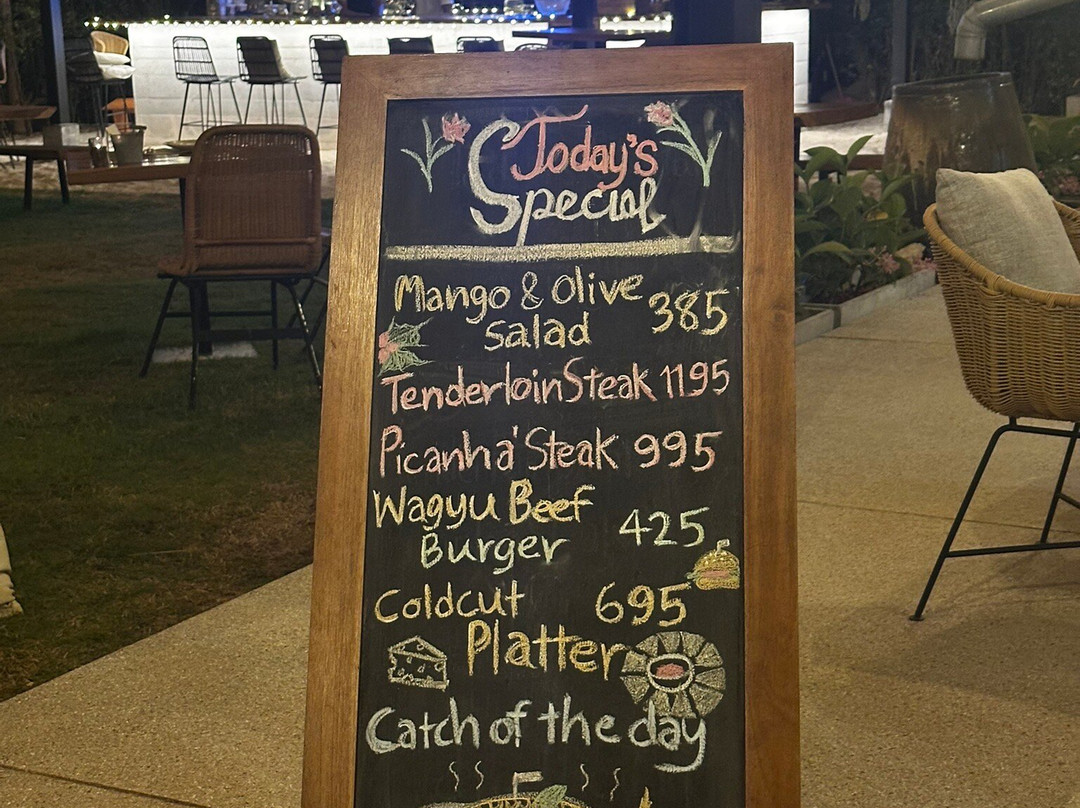 Today's
Special
Mango & Olive
Salad 385
Tenderloin Steak 1195
Picanha' Steak 995
Wagyu Beef
Burger 425
Coldcut 695
Platter
Catch of the day